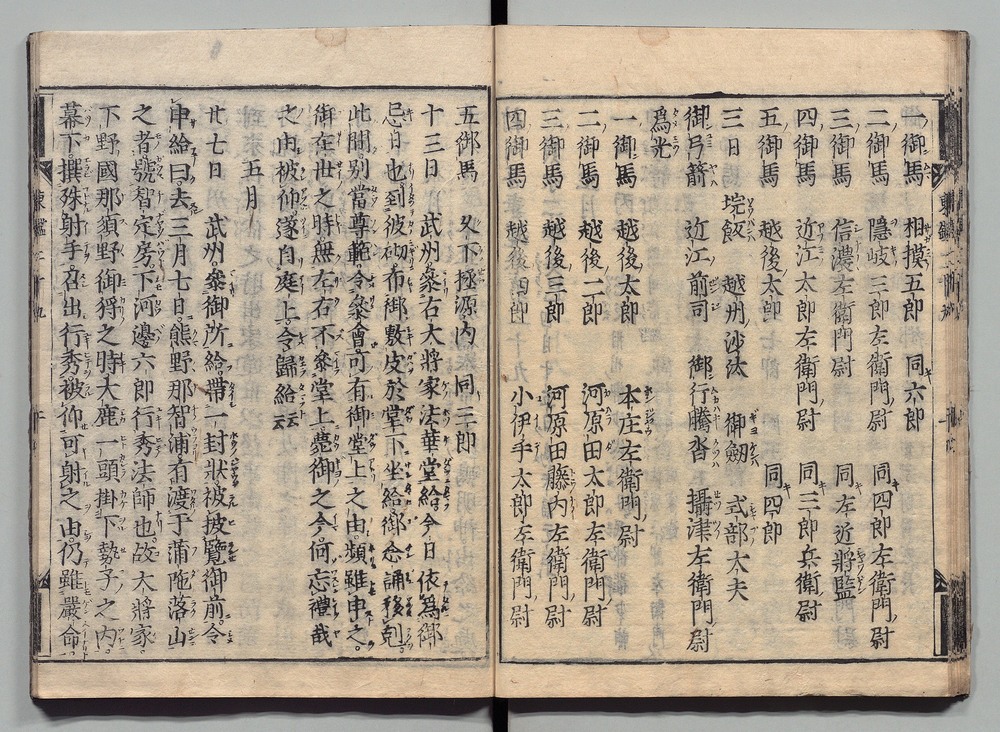 一御馬 相摸五郎 同六郎
二御馬 隱岐三郎左衛門尉 同四郎左衛門尉
三御馬 信濃左衛門尉 同左近將監
四御馬 近江太郎左衛門尉 同三郎兵衛尉
五御馬 越後太郎 同四郎
三日 垸飯 越州沙汰 御劔 式部大夫
御弓箭 近江前司 御行騰沓 攝津左衛門尉
爲光
一御馬 越後太郎 本庄左衛門尉
二御馬 越後二郎 河原田太郎左衛門尉
三御馬 越後三郎 河原田藤内左衛門尉
四御馬 越後四郎 小伊手太郎左衛門尉
五御馬 久下拯源内 同三郎
十三日 武州參右大將家法華堂給今日依爲御
忌日也到彼砌布御敷皮於堂下坐給御念誦移剋
此間別當尊範令參會可有御堂上之由頻雖申之
御在世之時無左右不參堂上薨御之今何忘禮哉
之由被仰遂自庭上令歸給云云
五月
廿七日 武州參御所給帶一封狀被披覽御前令
申給曰去三月七日熊野那智浦有渡于蒲陁落山
之者號智定房下河邊六郎行秀法師也故大將家
下野國那須野御狩之時大鹿一頭掛下勢子之内
幕下撰殊射手召出行秀被仰可射之由仍雖嚴命